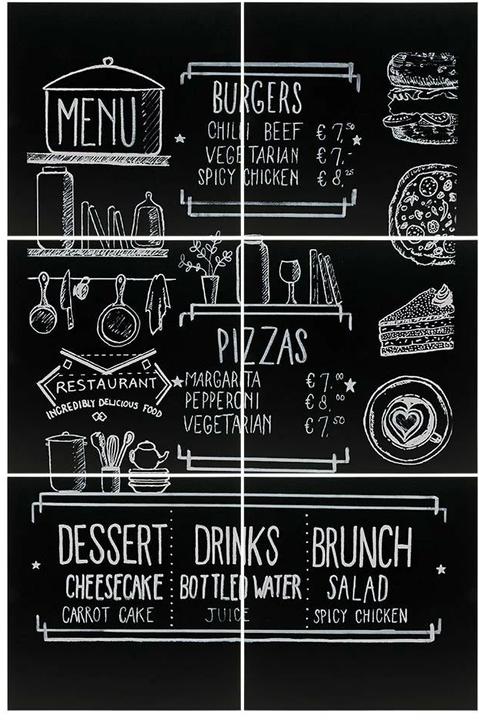 MENU
BURGERS
CHILLI BEEF €7.50
VEGETARIAN €7.-
SPICY CHICKEN €8.25
RESTAURANT
INCREDIBLY DELICIOUS FOOD
PIZZAS
MARGARITA €7.00
PEPPERONI €8.00
VEGETARIAN €7.50
DESSERT
CHEESECAKE
CARROT CAKE
DRINKS
BOTTLED WATER
JUICE
BRUNCH
SALAD
SPICY CHICKEN